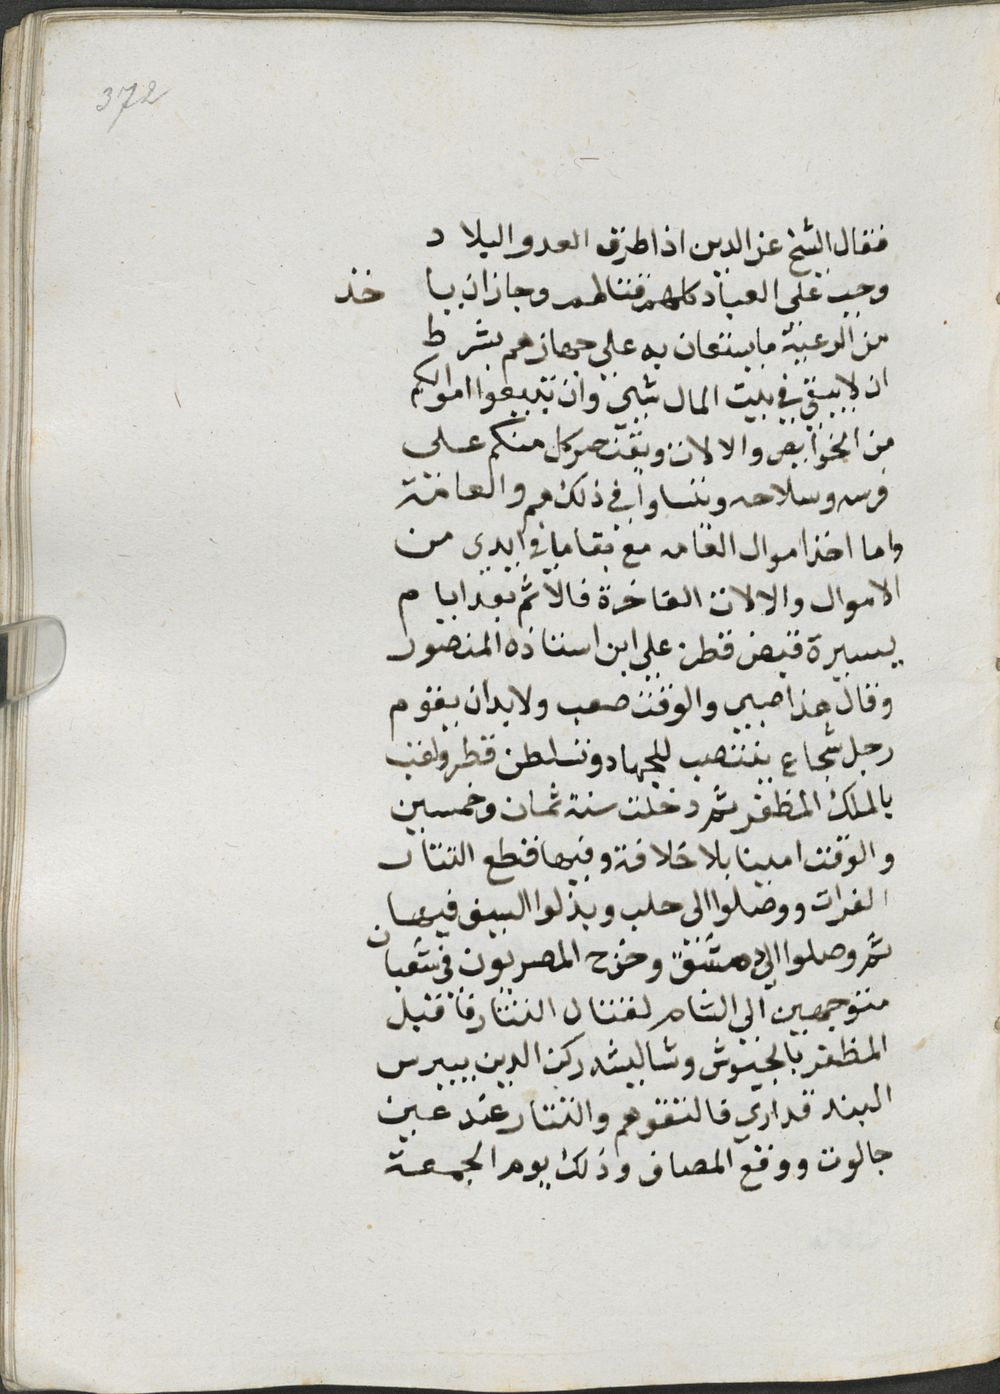 372
فقال الشيخ عز الدين اذا طرق العدو البلاد
وجب على العباد كلهم قتالهم وجاز ان ياخذ
من الرعية ما يستعان به على جهازهم بشرط
ان لا يبقى في بيت المال شي وان تبيعوا اموالكم
من الحوايص والالات ويقتصر كل منكم على
فرسه وسلاحه وتتساوا في ذلك هم والعامة
واما اخذ اموال العامه مع بقا ما في ايدي من
الاموال والالات الفاخرة فلا ثم بعد ايام
يسيرة قبض قطز على ابن استاذه المنصور
وقال هذا صبي والوقت صعب ولا بد ان يقوم
رجل شجاع ينتصب للجهاد وتسلطن قطز ولقب
بالملك المظفر ثم دخلت سنة ثمان وخمسين
والوقت ايضا بلا خلافة وفيها قطع التتار
الفرات ووصلوا الى حلب وبذلوا السيف فيها
ثم وصلوا الى دمشق وخرج المصريون في شعبان
متوجهين الى الشام لقتال التتار فاقبل
المظفر بالجيوش وشاليشه ركن الدين بيبرس
البندقداري فالتقوهم والتتار عند عين
جالوت ووقع المصاف وذلك يوم الجمعة